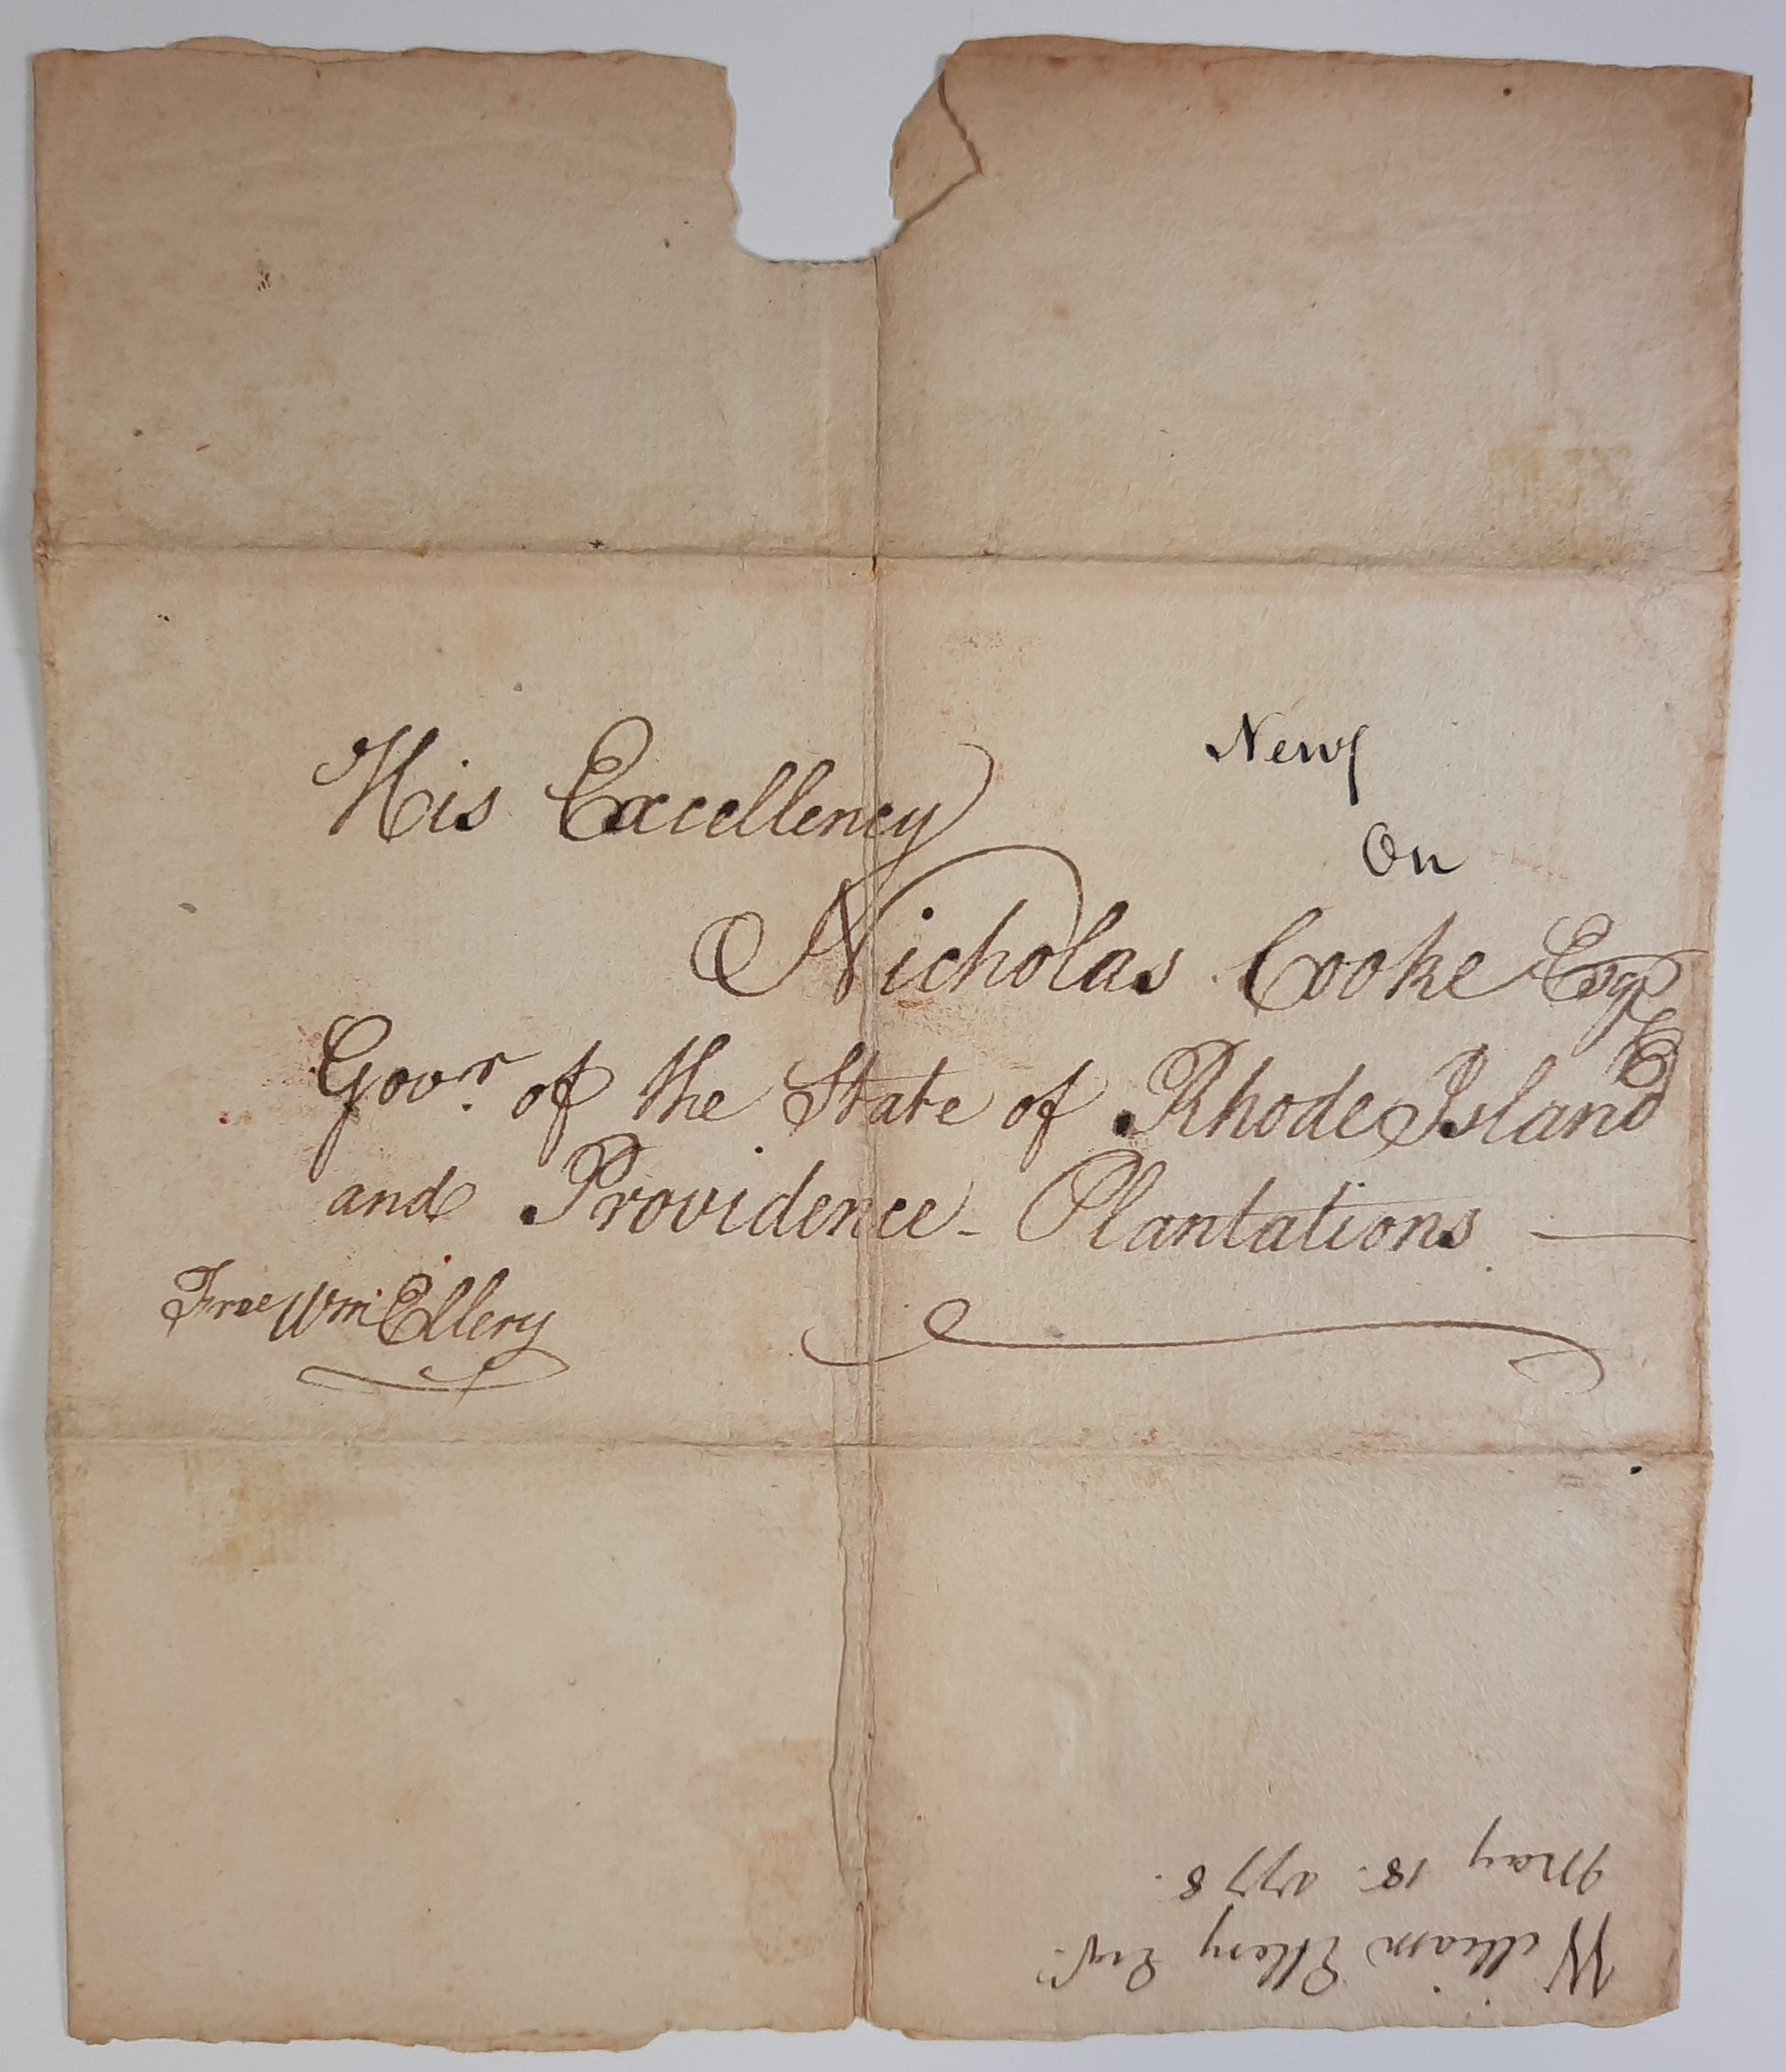 His Excellency
News
On
Nicholas Cooke Esqr
Govr. of the State of Rhode Island
and Providence - Plantations —
Free Wm Ellery
William Ellery Esqr.
May 18. 1778.